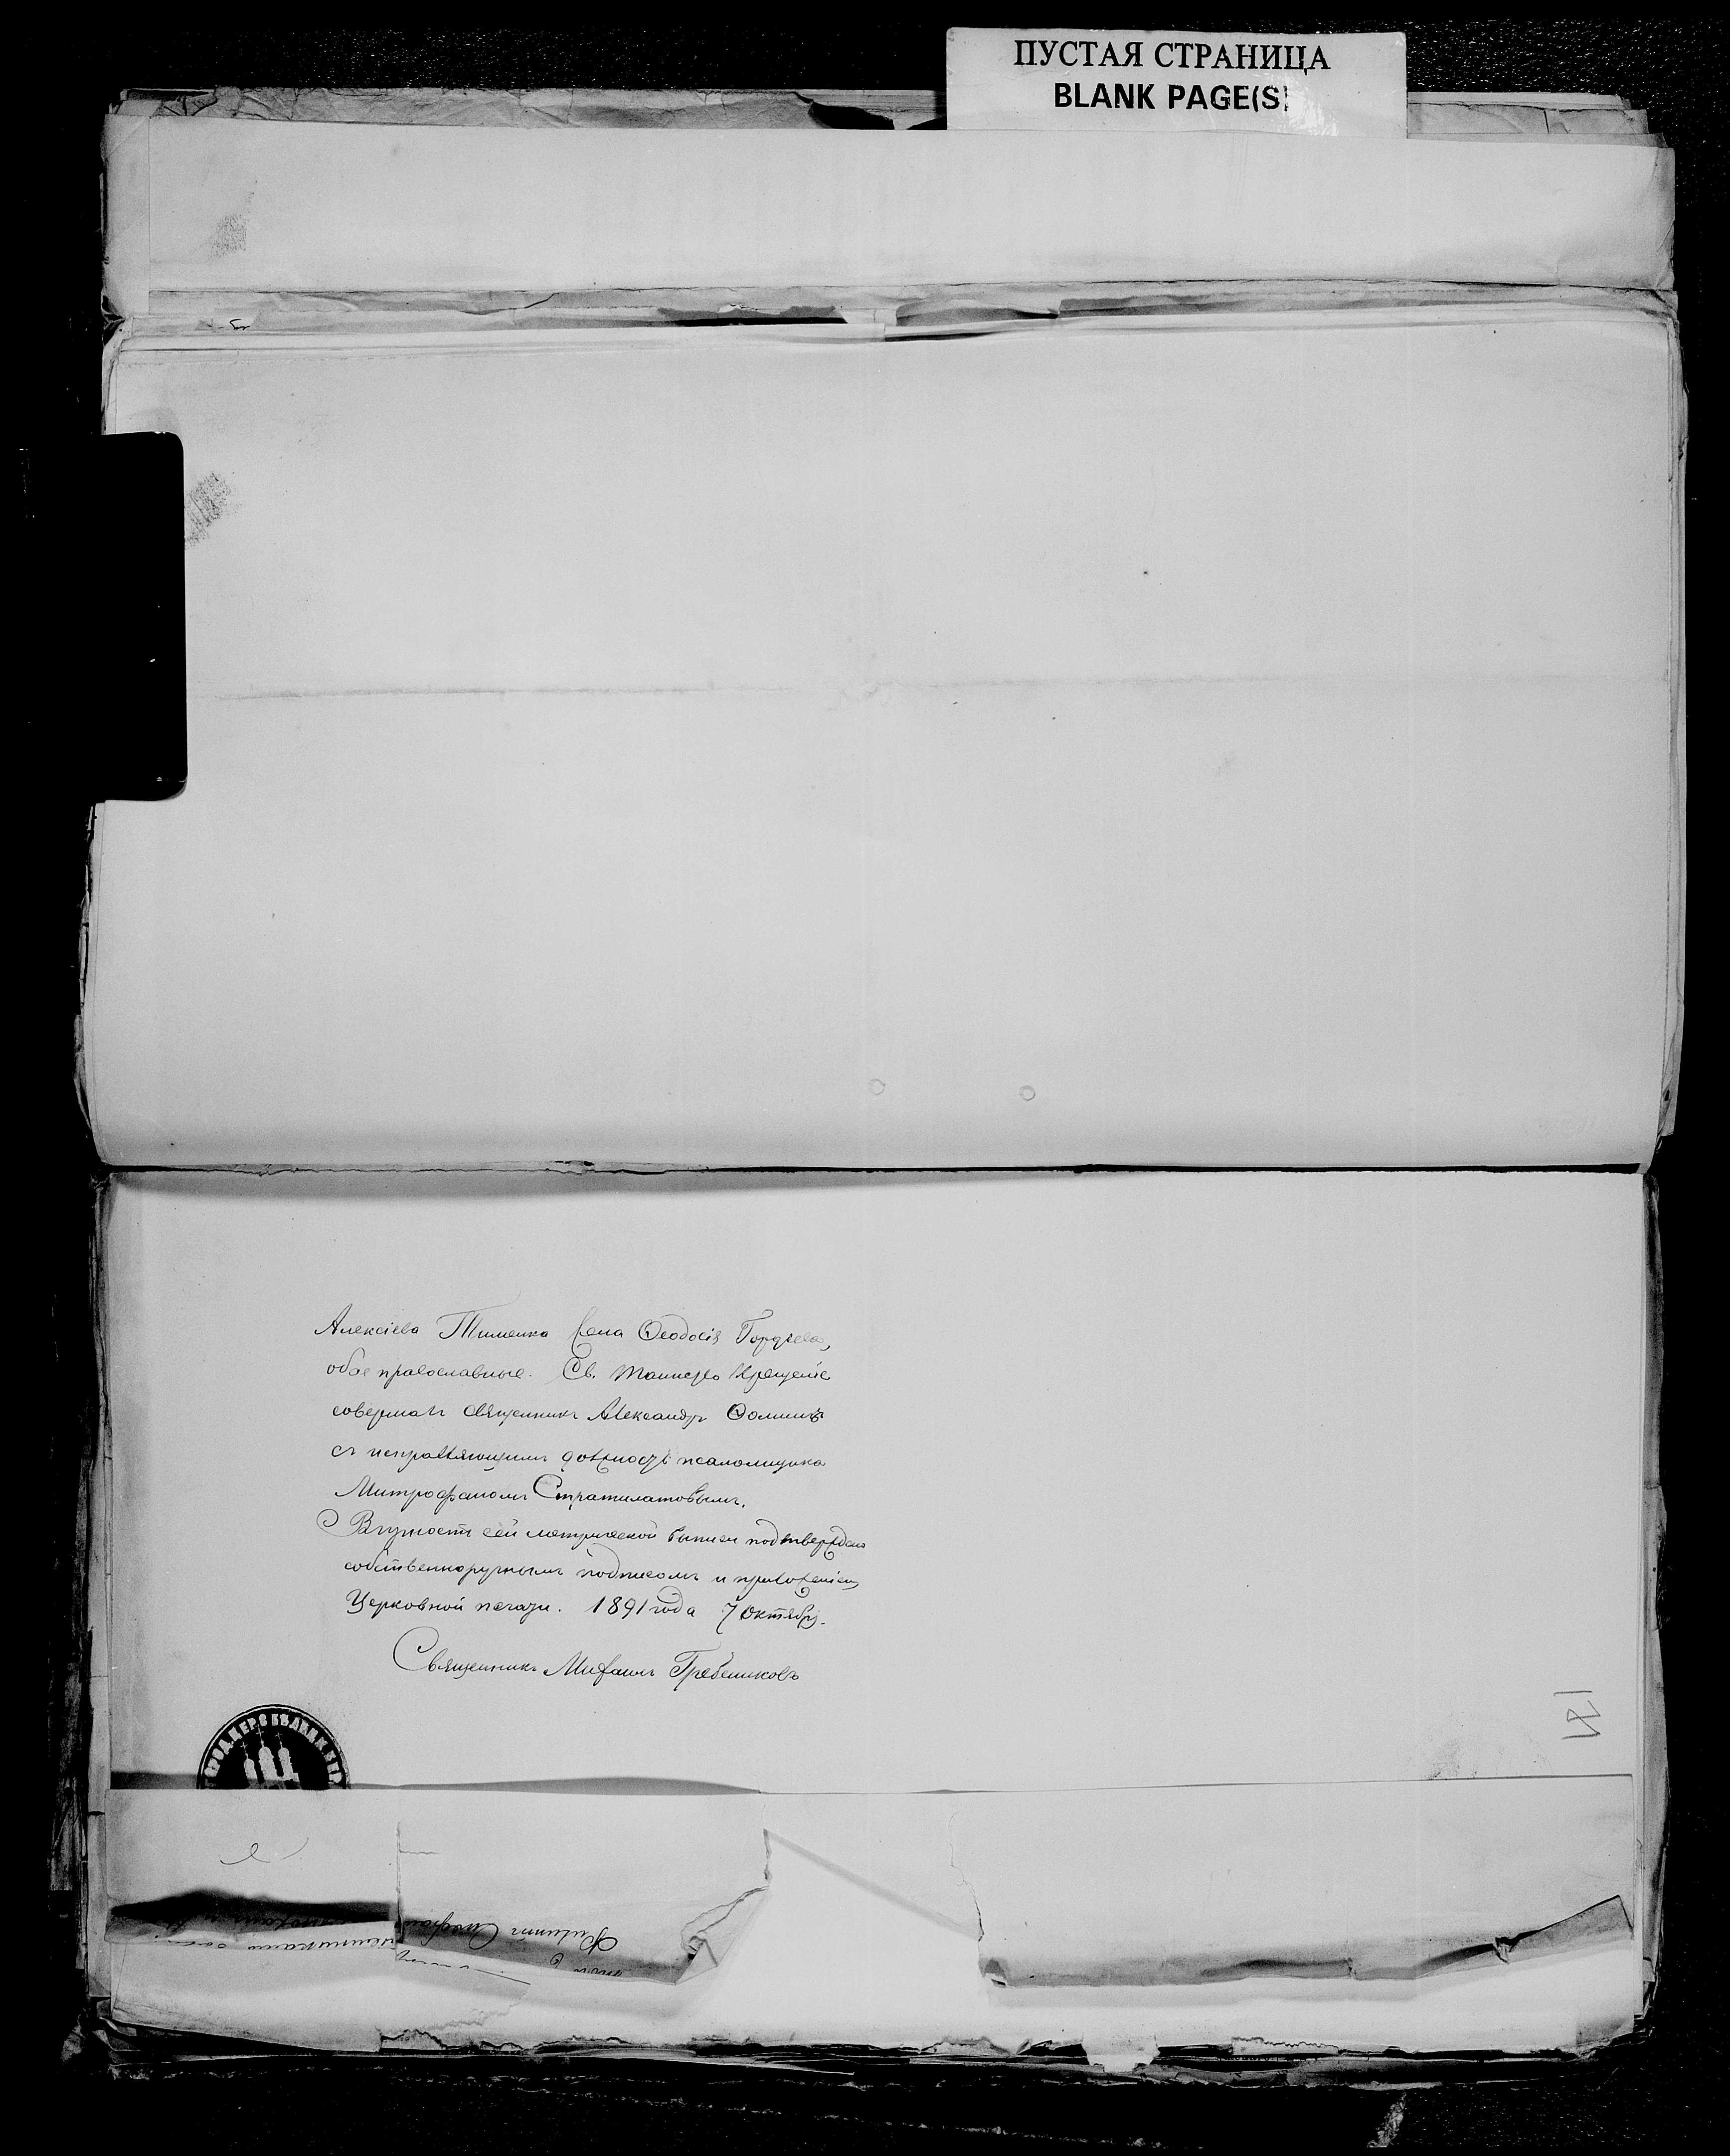 ПУСТАЯ СТРАНИЦА
BLANK PAGE(S)
Алексіева Тименка Θеодосія Гордѣева,
обое православные. Св. таинство Крещеніе
совершалъ священникъ Александръ Θоминъ
съ исправляющимъ должность псаломщика
Митрофаномъ Стратилатовымъ.
Вѣрность сей метрической выписи подтверждаю
собственноручнымъ подписомъ и приложеніемъ
Церковной печати. 1891 года 7 Октября.
Священникъ Михаилъ Гребениковъ
Филиппъ